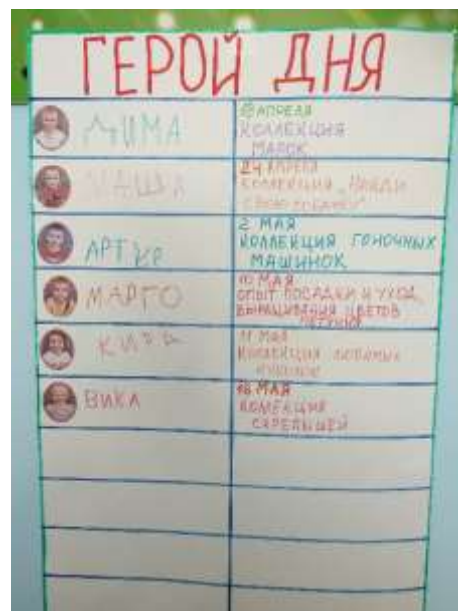 ГЕРОЙ ДНЯ
ДИМА
АПРЕЛЯ
КОЛЛЕКЦИЯ
МАРОК
МАША
24 АПРЕЛЯ
КОЛЛЕКЦИЯ „НАЙДИ
СВОЮ СОБАЧКУ"
АРТУР
2 МАЯ
КОЛЛЕКЦИЯ ГОНОЧНЫХ
МАШИНОК
МАРГО
10 МАЯ
ОПЫТ ПОСАДКИ И УХОД
ВЫРАЩИВАНИЯ ЦВЕТОВ
КИРА
МАЯ
КОЛЛЕКЦИЯ ЛЮБИМЫХ
ВИКА
16 МАЯ